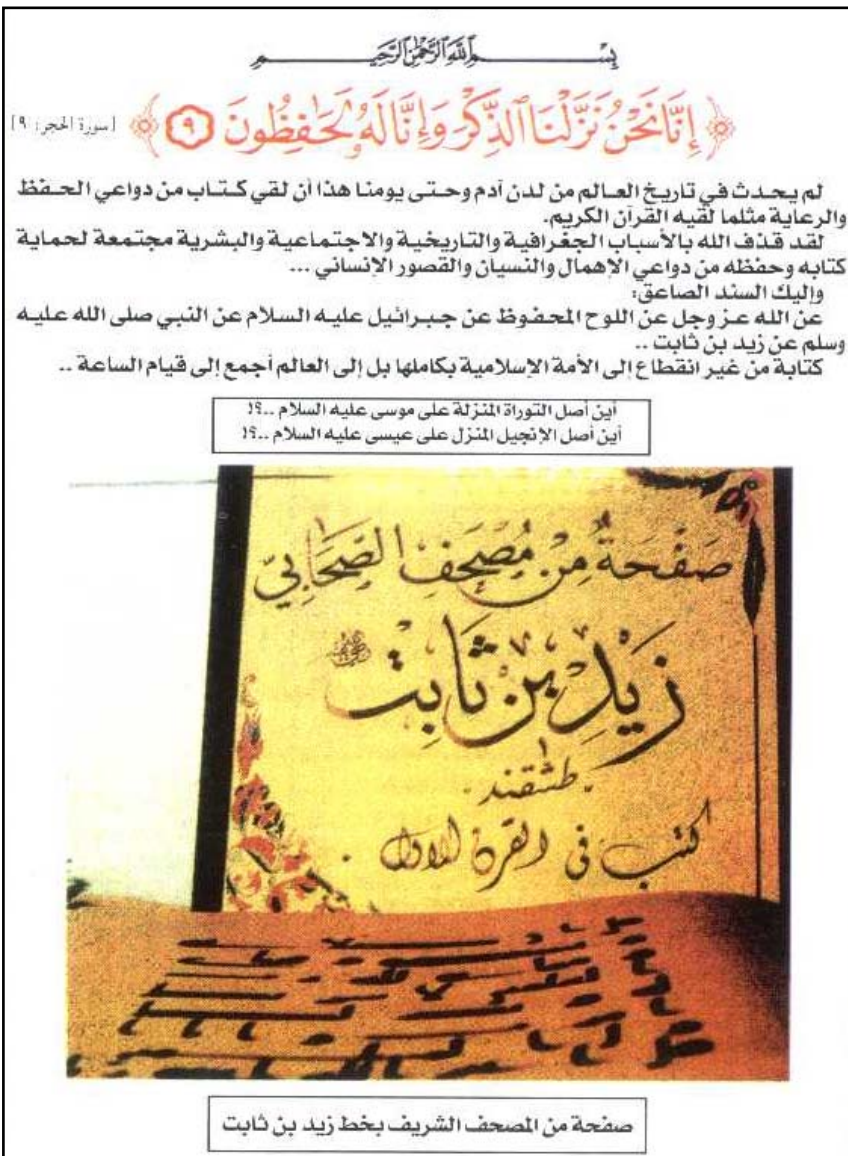 بسم الله الرحمن الرحيم
﴿ إِنَّا نَحْنُ نَزَّلْنَا ٱلذِّكْرَ وَإِنَّا لَهُۥ لَحَٰفِظُونَ ٩ ﴾ [سورة الحجر: ٩]
لم يحدث في تاريخ العالم من لدن آدم وحتى يومنا هذا أن لقي كتاب من دواعي الحفظ
والرعاية مثلما لقيه القرآن الكريم.
لقد قذف الله بالأسباب الجغرافية والتاريخية والاجتماعية والبشرية مجتمعة لحماية
كتابه وحفظه من دواعي الإهمال والنسيان والقصور الإنساني ...
وإليك السند الصاعق:
عن الله عز وجل عن اللوح المحفوظ عن جبرائيل عليه السلام عن النبي صلى الله عليه
وسلم عن زيد بن ثابت ..
كتابة من غير انقطاع إلى الأمة الإسلامية بكاملها بل إلى العالم أجمع إلى قيام الساعة ..
أين أصل التوراة المنزلة على موسى عليه السلام ..؟!
أين أصل الإنجيل المنزل على عيسى عليه السلام ..؟!
صَفْحَةٌ مِنْ مُصْحَفِ الصَّحَابِيّ
زَيْدِ بْنِ ثَابِت
طشقند
كتب في القرن الأول
صفحة من المصحف الشريف بخط زيد بن ثابت